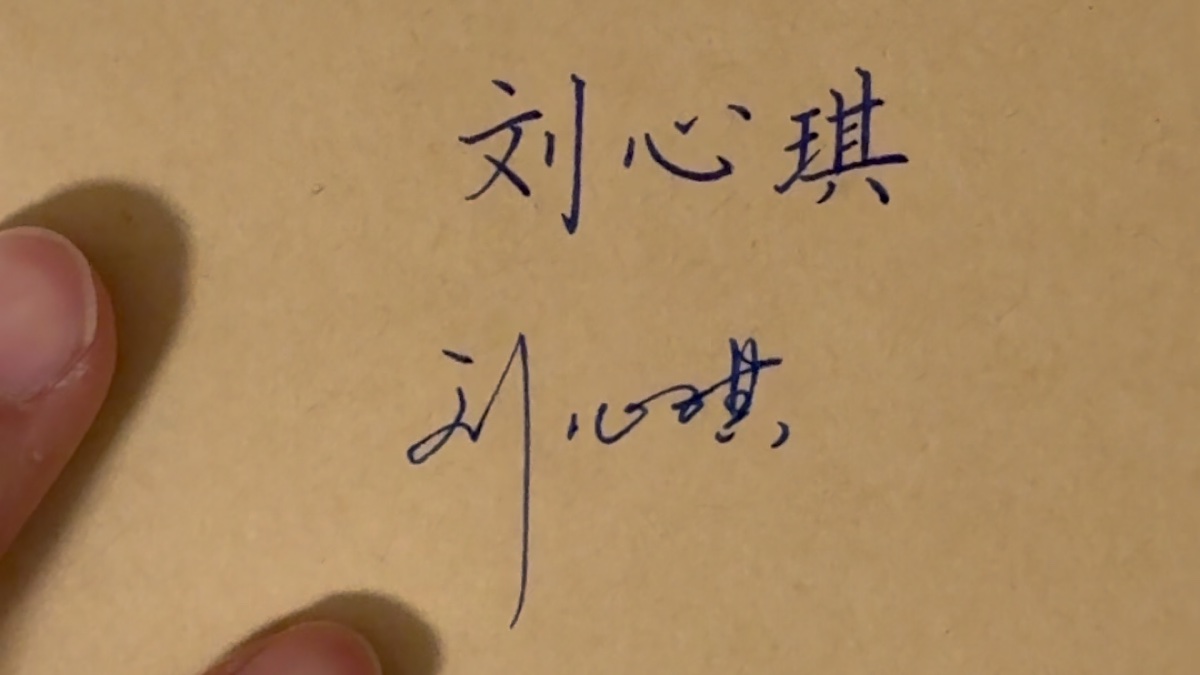 刘心琪
刘心琪